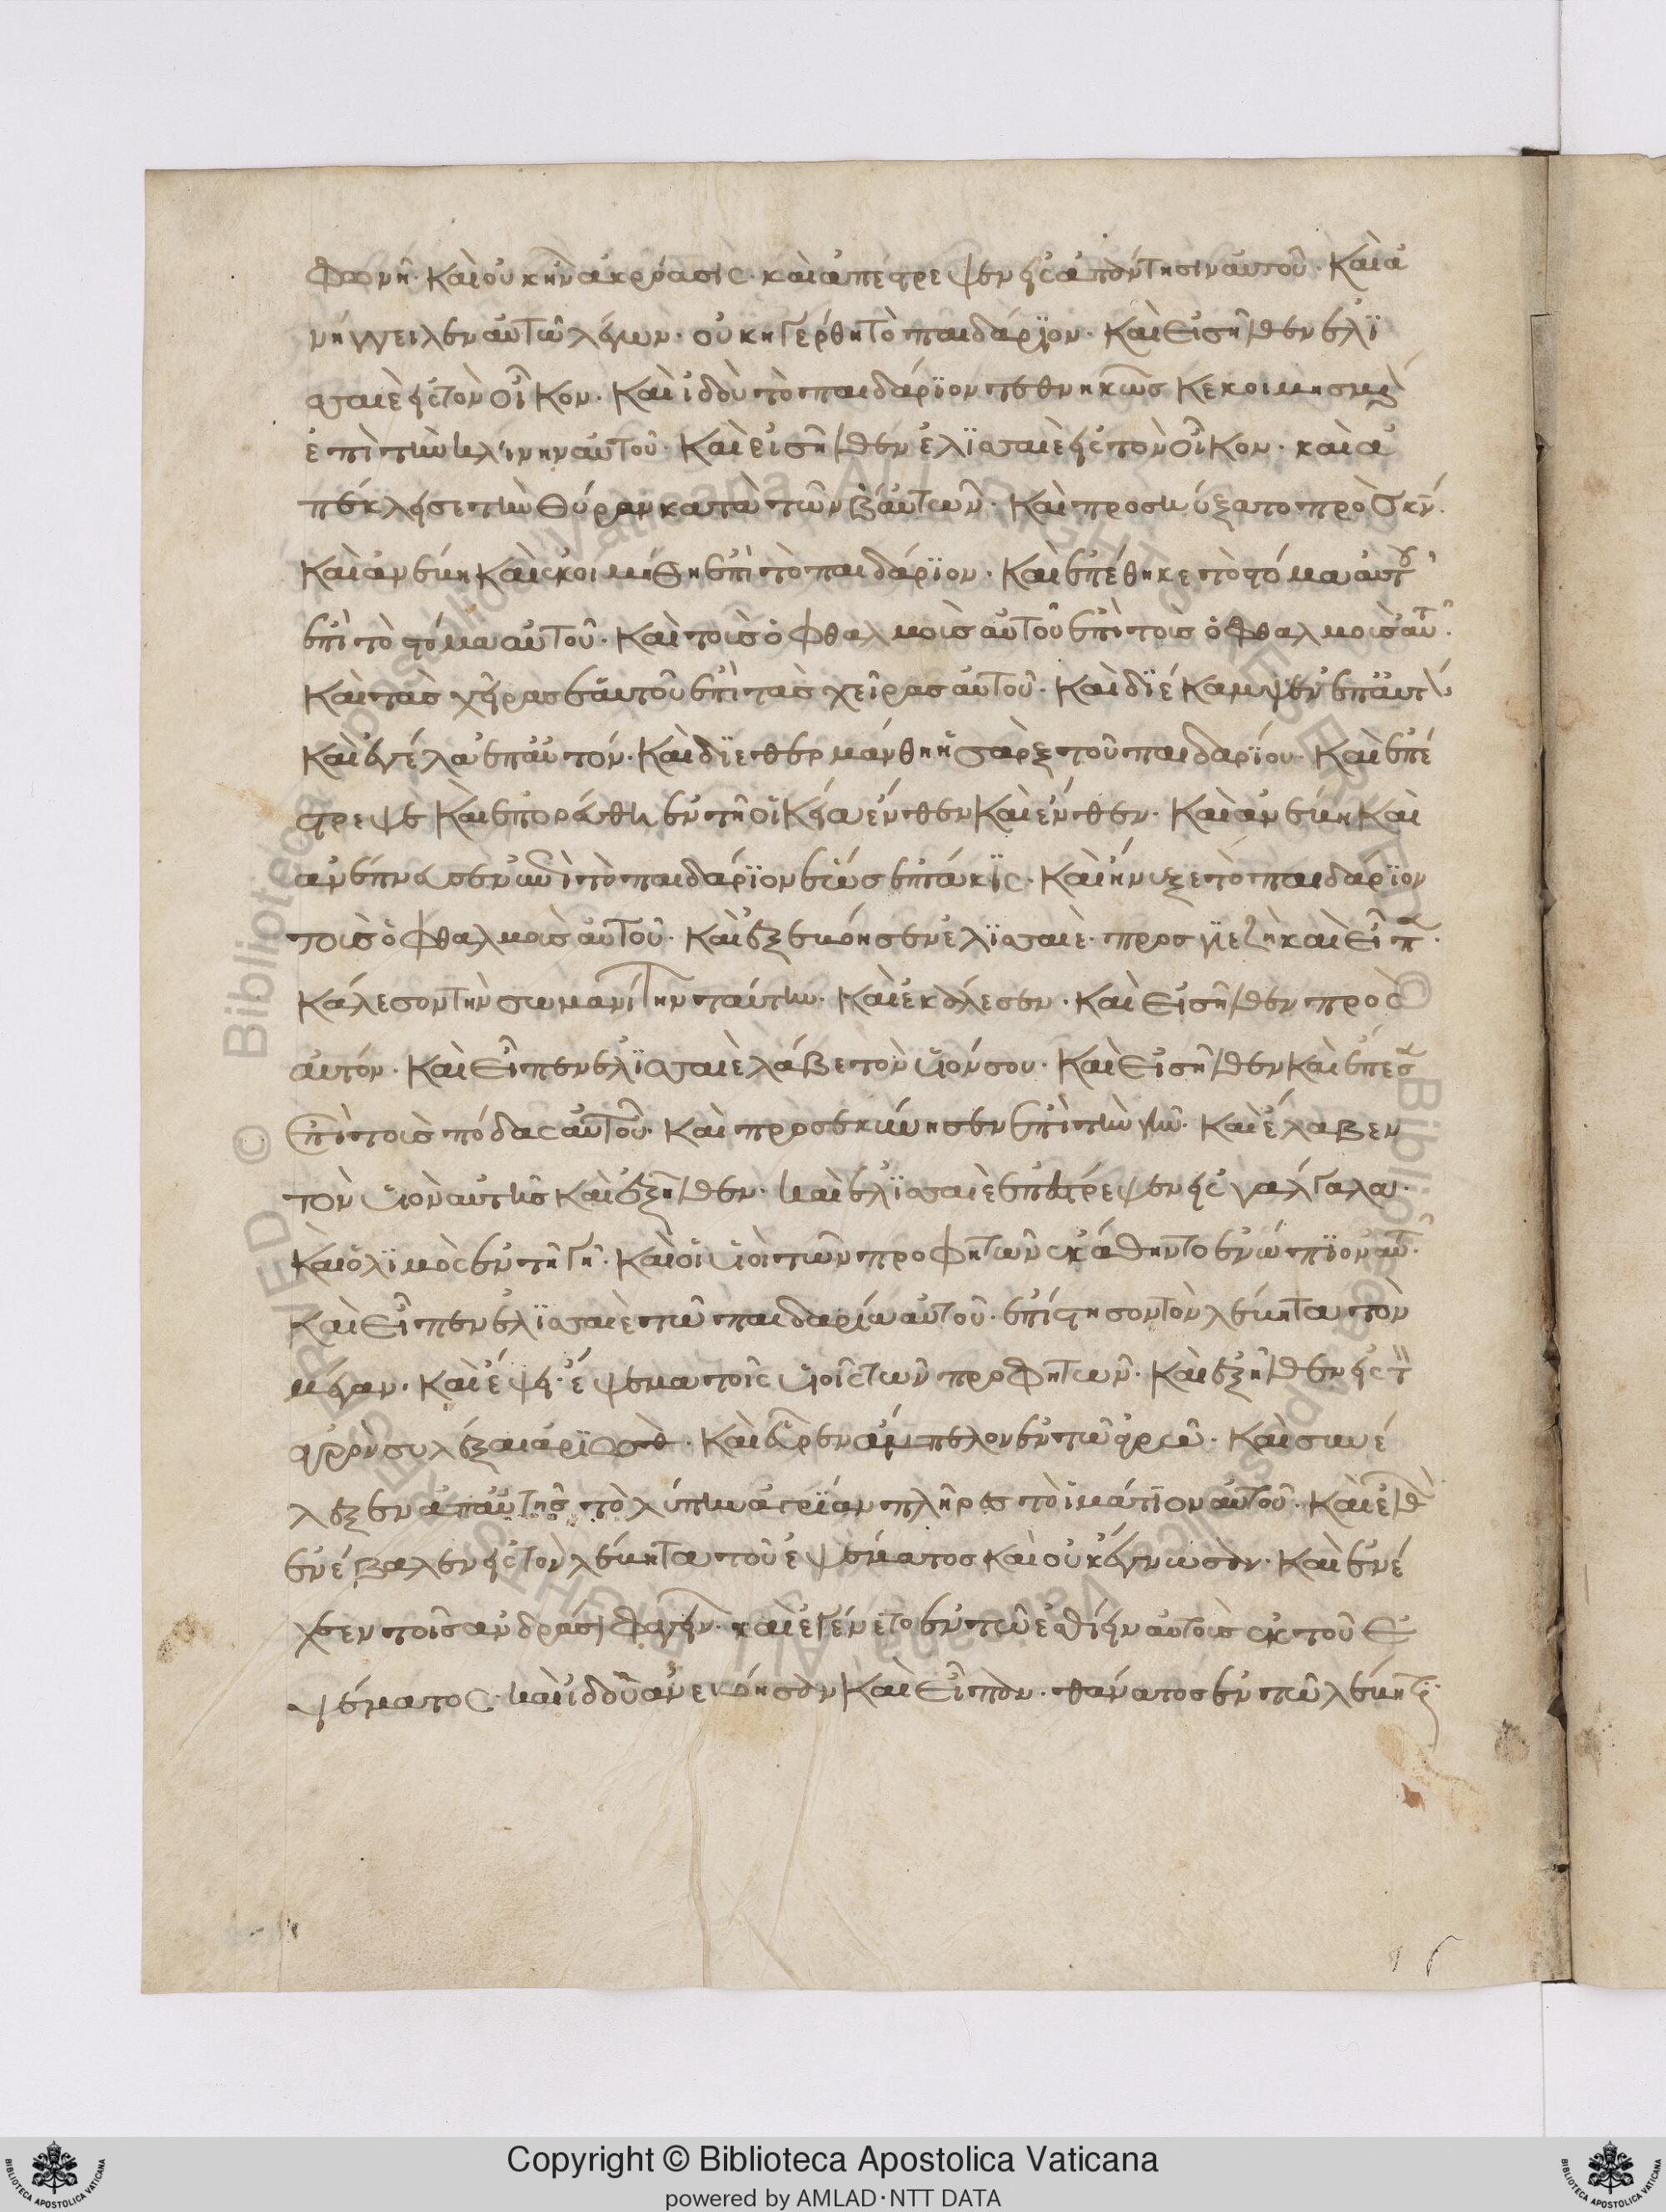 φωνὴ· καὶ οὐκ ἦν ἀκρόασις· καὶ ἀπέστρεψεν εἰς ἀπάντησιν αὐτοῦ· Καὶ ἀ
νήγγειλεν αὐτῶ λέγων· οὐκ ἠγέρθη τὸ παιδάριον· Καὶ εἰσῆλθεν ἐλϊ
σσαιὲ εἰς τὸν οἶκον· Καὶ ἰδοὺ τὸ παιδάριον τεθνηκὼς κεκοιμησμέ
ἐπὶ τὴν κλίνην αὐτοῦ· Καὶ εἰσῆλθεν ἐλϊσσαιὲ εἰς τὸν οἶκον· καὶ ἀ
πέκλεισε τὴν θύραν κατὰ τῶν β αὐτῶν· Καὶ προσηύξατο πρὸς κν·
Καὶ ἀνέβη καὶ ἐκοιμήθη ἐπὶ τὸ παιδάριον· Καὶ ἐπέθηκε τὸ στόμα αὐτοῦ
ἐπὶ τὸ στόμα αὐτοῦ· Καὶ τοὺς ὀφθαλμοὺς αὐτοῦ ἐπὶ τοὺς ὀφθαλμοὺς αὐτ·
Καὶ τὰς χεῖρας ἑαυτοῦ ἐπὶ τὰς χεῖρας αὐτοῦ· Καὶ διέκαμψεν ἐπ αὐτὸν
Καὶ ἀγέλα ἐπ αὐτόν· Καὶ διεθερμάνθη ἡ σὰρξ τοῦ παιδαρίου· Καὶ ἐπέ
στρεψε Καὶ ἐπορεύθη ἐν τῆ οἰκεία ἔνθεν Καὶ ἔνθεν· Καὶ ἀνέβη Καὶ
ἐνέπνευσεν ἐπὶ τὸ παιδάριον ἕως ἑπτάκϊς· Καὶ ἤνυξε τὸ παιδάριον
τοὺς ὀφθαλμοὺς αὐτοῦ· Καὶ ἐξεβόησεν ἐλϊσσαιὲ· προς γϊεζὴ καὶ εἶπ·
Κάλεσον τὴν σωμανίτην ταύτην· Καὶ ἐκάλεσεν· Καὶ εἰσῆλθεν πρὸς
αὐτόν· Καὶ εἶπεν ἐλϊσσαιὲ λάβε τὸν υἱόν σου· Καὶ εἰσῆλθεν Καὶ ἔπεσ
ἐπὶ τοὺς πόδας αὐτοῦ· Καὶ προσεκύνησεν ἐπὶ τὴν γῆν· Καὶ ἔλαβεν
τὸν υἱὸν αὐτῆς Καὶ ἐξῆλθεν· Καὶ ἐλϊσσαιὲ ἐπέστρεψεν εἰς γάλγαλα·
Καὶ ὁ λϊμὸς ἐν τῆ γῆ· Καὶ οἱ υἱοὶ τῶν προφητῶν ἐκάθηντο ἐνώπϊον αὐτ·
Καὶ εἶπεν ἐλϊσσαιὲ τῶ παιδαρίω αὐτοῦ· ἐπίστησον τὸν λέβητα τὸν
μέγαν· Καὶ ἕψει ἕψεμα τοῖς υἱοῖς τῶν προφητῶν· Καὶ ἐξῆλθεν εἰς τ
ἀγρὸν συλέξαι ἀρϊωθ· Καὶ εὗρεν ἄμπελον ἐν τῶ ἀγρῶ· Καὶ συνέ
λεξεν ἀπ αὐτῆς τολύπην ἀγρϊαν πλῆρες τὸ ἱμάτϊον αὐτοῦ· Καὶ ἐλθ
ἐνέβαλεν εἰς τὸν λέβητα τοῦ ἑψέματος καὶ οὐκ ἔγνωσαν· Καὶ ἐνέ
χεεν τοῖς ἀνδράσι φαγεῖν· καὶ ἐγένετο ἐν τῶ ἐσθίειν αὐτοὺς ἐκ τοῦ ἑ
ψέματος· Καὶ ἰδοὺ ἀνεβόησαν Καὶ εἶπον· θάνατος ἐν τῶ λέβητϊ